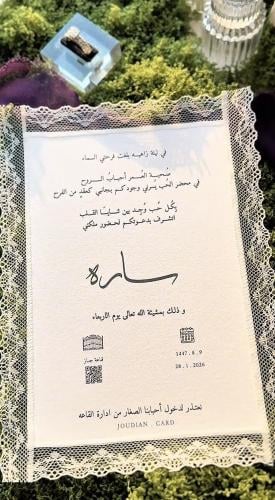 في ليلة زاهيه بلغت فرحتي السماء
صحبة العُمر أحباب الـروح
في محضر الحُب يسرني وجودكم بجانبي كعقدٍ من الفرح
بِكُل حُب وُجِد بين ثنـايـا القـلب
اتشرف بدعوتكم لحضور ملكتي
ســاره
و ذلك بمشيئة الله تعالى يوم الأربعاء
1447.8.9
28.1.2026
قاعة جــاز
نعتذر لدخول أحبابنا الصغار من ادارة القاعه
JOUDIAN . CARD